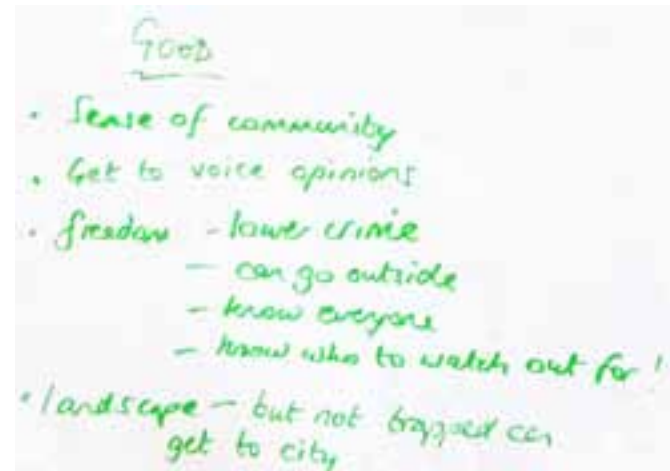 GOOD
• Sense of community
• Get to voice opinions
• freedom - lower crime
- can go outside
- know everyone
- know who to watch out for!
• landscape - but not trapped can
get to city